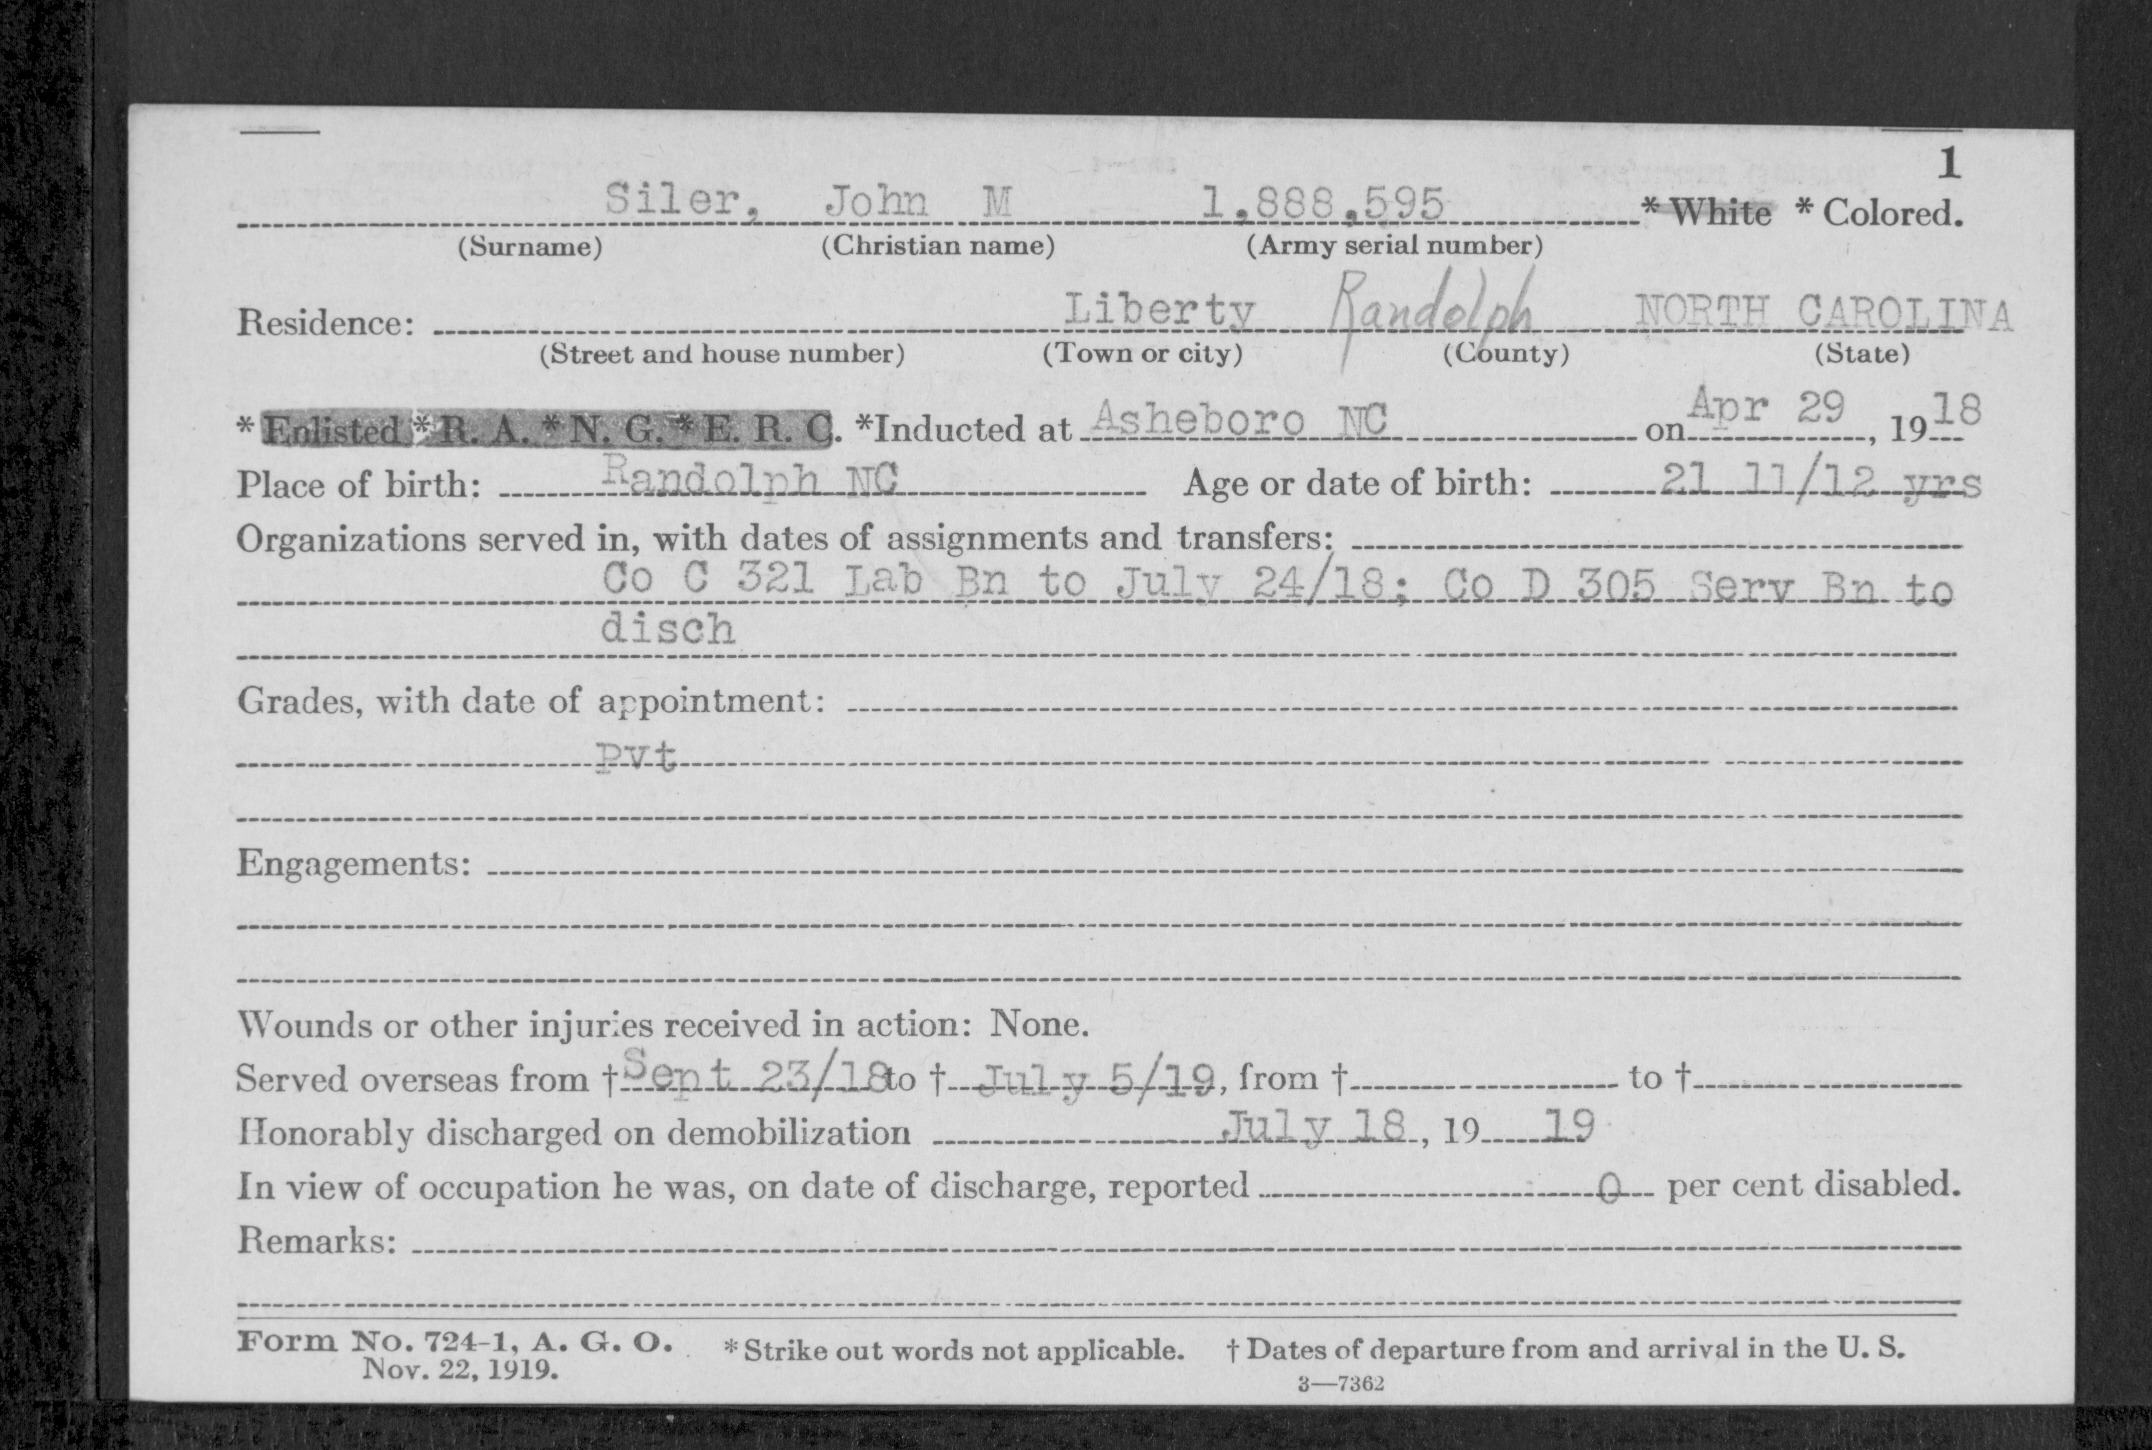 1
Siler, John M 1,888,595 * White * Colored.
(Surname) (Christian name) (Army serial number)
Residence: Liberty Randolph NORTH CAROLINA
(Street and house number) (Town or city) (County) (State)
* Enlisted * R. A. * N. G. * E. R. C. *Inducted at Asheboro NC on Apr 29, 1918
Place of birth: Randolph NC Age or date of birth: 21 11/12 yrs
Organizations served in, with dates of assignments and transfers:
Co C 321 Lab Bn to July 24/18; Co D 305 Serv Bn to
disch
Grades, with date of appointment:
Pvt
Engagements:
Wounds or other injuries received in action: None.
Served overseas from † Sept 23/18 to † July 5/19, from † to †
Honorably discharged on demobilization July 18, 19 19
In view of occupation he was, on date of discharge, reported 0 per cent disabled.
Remarks:
Form No. 724-1, A. G. O. * Strike out words not applicable. † Dates of departure from and arrival in the U. S.
Nov. 22, 1919.
3—7362